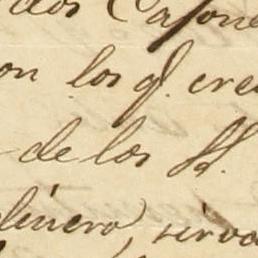 dos Cajone
on los q.^e cre
de los SS.
género, sirva